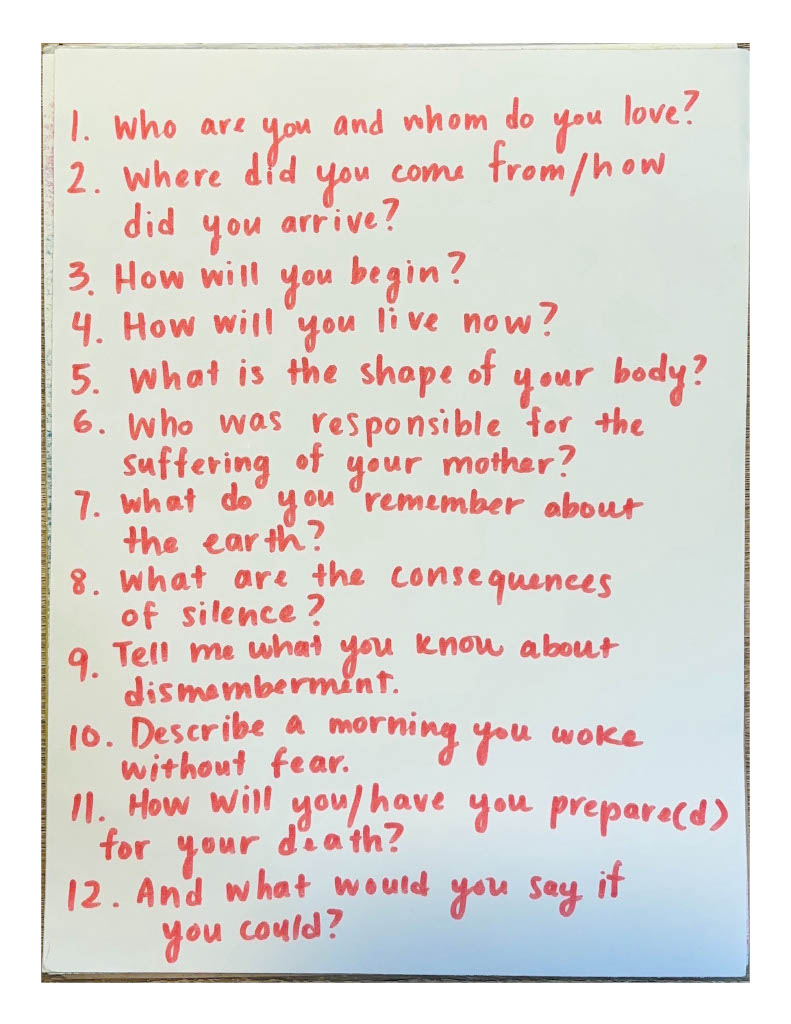 1. Who are you and whom do you love?
2. Where did you come from/how
did you arrive?
3. How will you begin?
4. How will you live now?
5. What is the shape of your body?
6. Who was responsible for the
suffering of your mother?
7. What do you remember about
the earth?
8. What are the consequences
of silence?
9. Tell me what you know about
dismemberment.
10. Describe a morning you woke
without fear.
11. How will you/have you prepare(d)
for your death?
12. And what would you say if
you could?